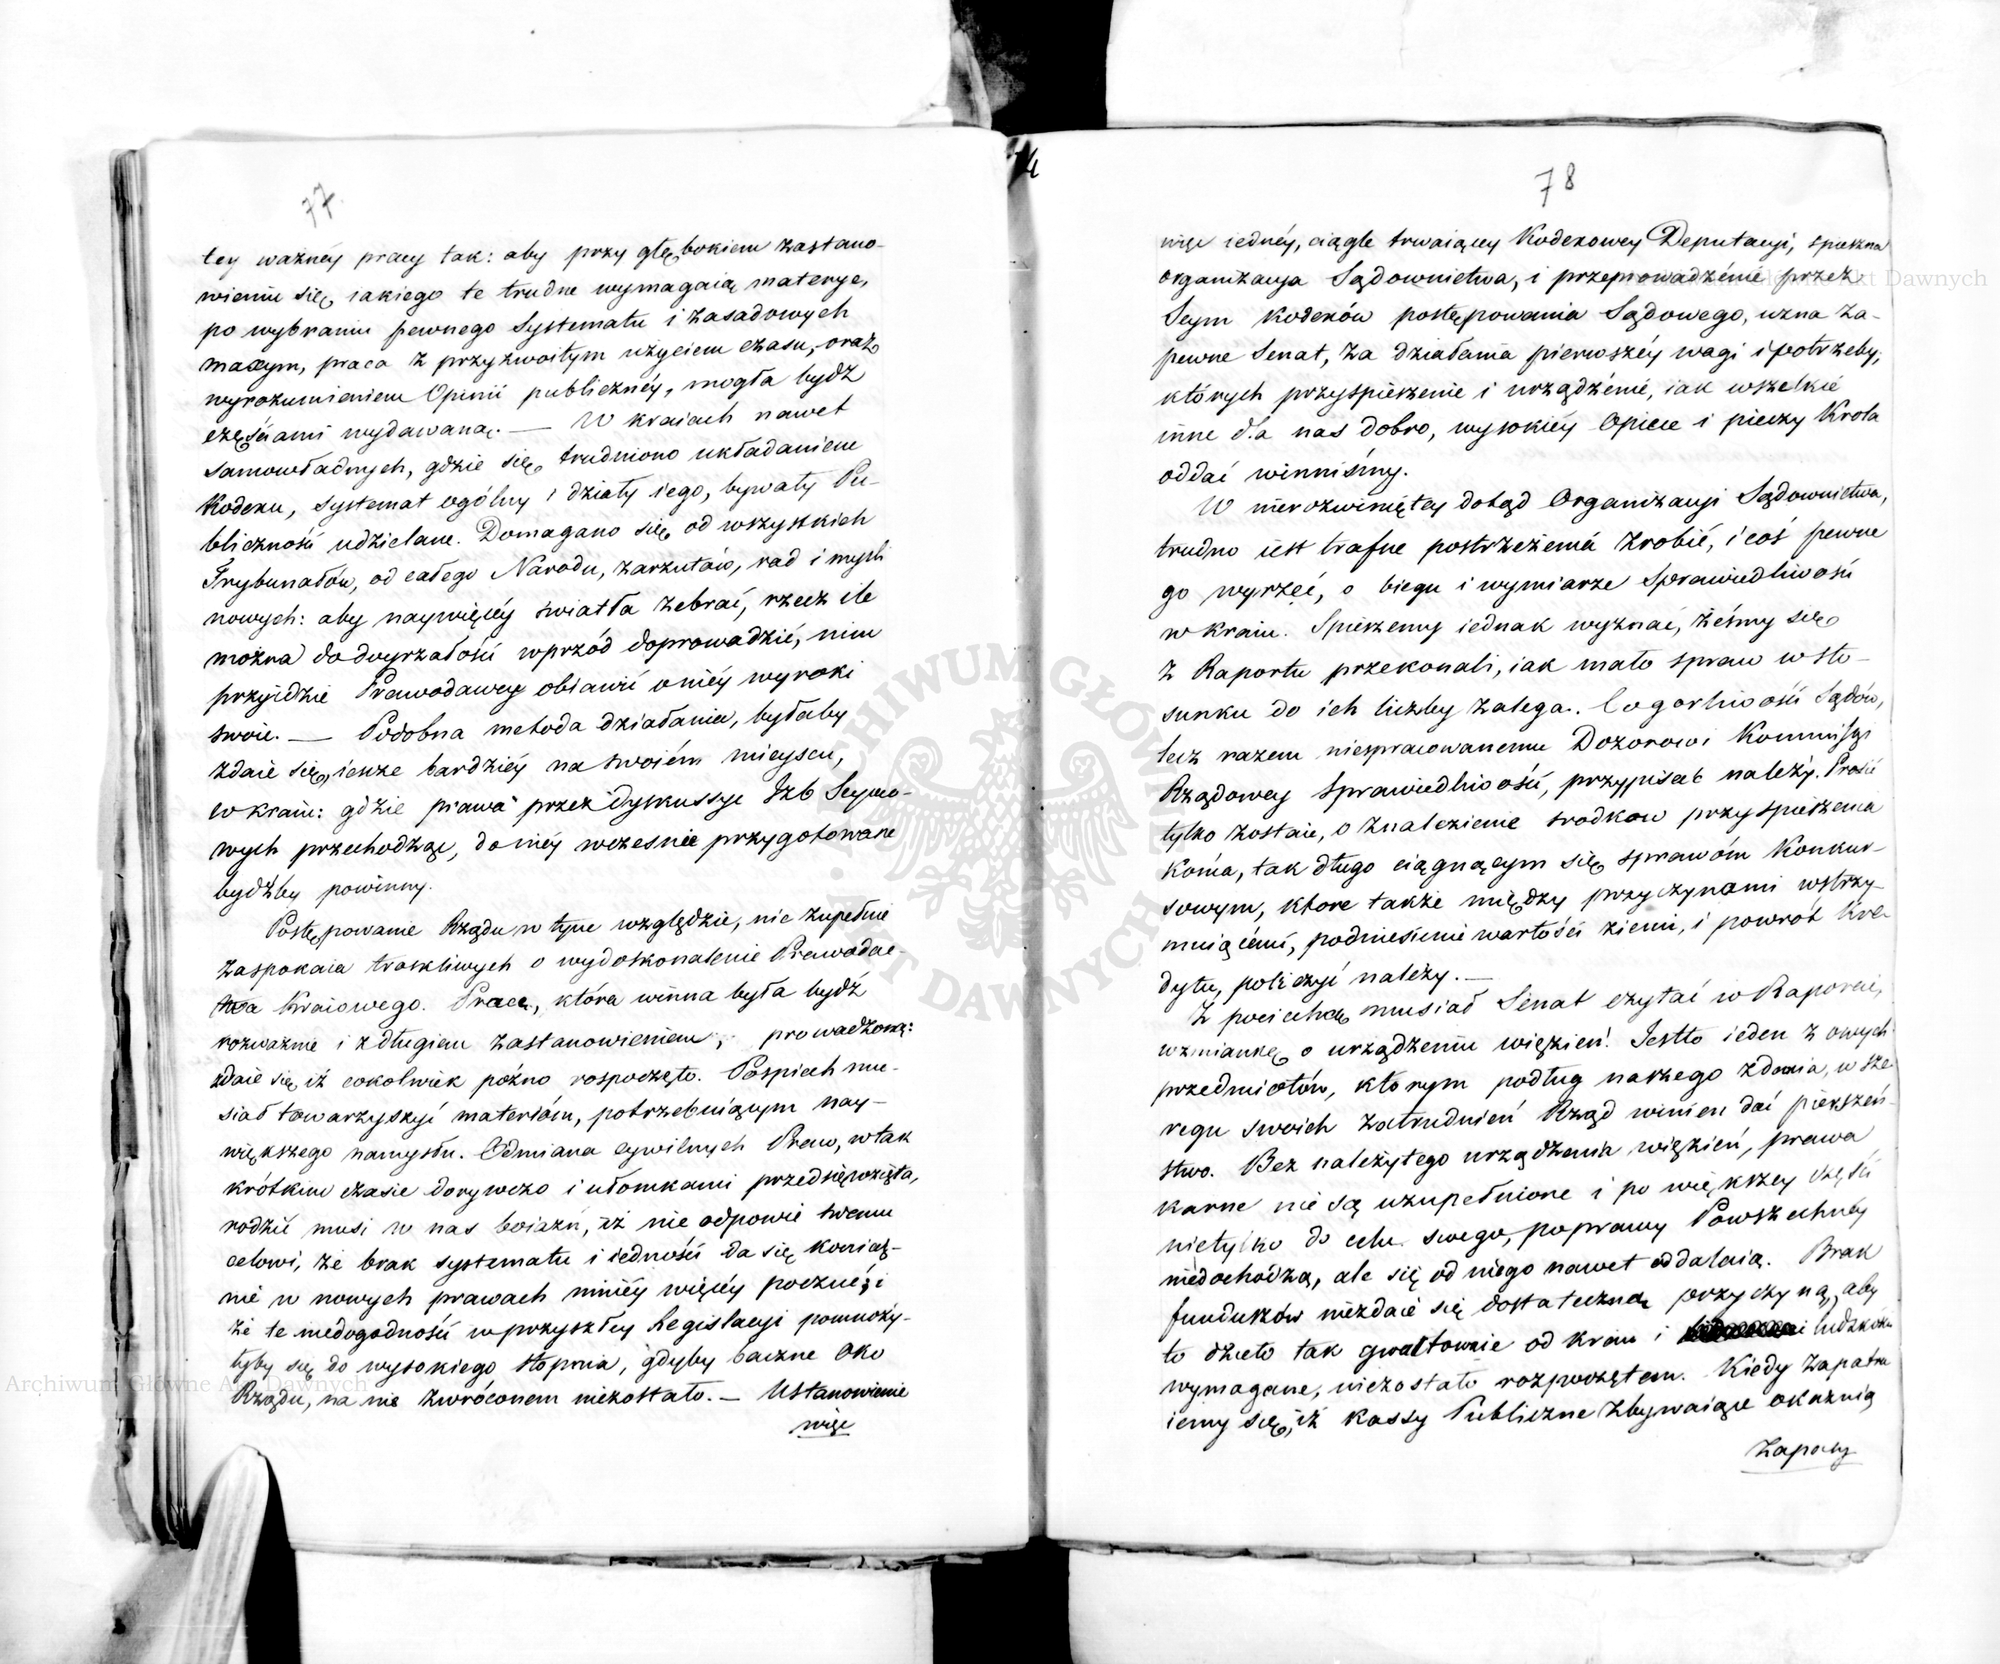 77.
tey ważnéy pracy tak: aby przy głębokiem zastano-
wieniu się, iakiego te trudne wymagaią materye,
po wybraniu pewnego Systematu i zasadowych
maxym, praca z przyzwoitym użyciem czasu, oraz
wyrozumieniem Opinii publicznéy, mogła bydź
częściami wydawaną. — W kraiach nawet
samowładnych, gdzie się trudniono układaniem
Kodexu, Systemat ogólny i działy iego, bywały Pu-
bliczności udzielane. Domagano się od wszystkich
Trybunałów, od całego Narodu, zarzutów, rad i myśli
nowych: aby naywięcéy światła zebrać, rzecz ile
można do doyrzałości wprzód doprowadzić, nim
przyidzie Prawodawcy obiawić o niéy wyroki
swoie. — Podobna metoda działania, byłaby
zdaie się, ieszcze bardziéy na swoiém mieyscu,
w kraiu: gdzie prawa przez dyskussye Izb Seymo-
wych przechodząc, do niéy wcześnie przygotowane
bydźby powinny.
Postępowanie Rządu w tym względzie, nie zupełnie
zaspokaia troskliwych o wydoskonalenie Prawodac-
twa Kraiowego. Praca, która winna była bydź
rozważnie i z długiem zastanowieniem, prowadzoną:
zdaie się iż cokolwiek późno rospoczęto. Pospiech mu-
siał towarzyszyć materióm, potrzebuiącym nay-
większego namysłu. Odmiana cywilnych Praw, w tak
krótkim czasie dorywczo i ułomkami przedsięwzięta,
rodzić musi w nas boiaźń, iż nie odpowie swemu
celowi, że brak systematu i iedności da się koniecz-
nie w nowych prawach mniéy więcéy poczuć; i
że te niedogodności w przyszłey Legislacyi pomnoży-
łyby się do wysokiego stopnia, gdyby baczne oko
Rządu, na nie zwróconem niezostało. — Ustanowienie
więc
78
więc iednéy, ciągle trwaiącey Kodexowey Deputacyi, spieszna
organizacya Sądownictwa, i przeprowadzénie przez
Seym Kodexów postępowania Sądowego, uzna za-
pewne Senat, za działania pierwszéy wagi i potrzeby,
których przyspieszenie i urządzénie, iak wszelkié
inne dla nas dobro, wysokiéy Opiece i pieczy Króla
oddać winniśmy.
W nierozwiniętey dotąd Organizacyi Sądownictwa,
trudno iest trafne postrzeżenia zrobić, i coś pewne
go wyrzéc, o biegu i wymiarze Sprawiedliwości
w kraiu. Spieszemy iednak wyznać, żeśmy się
z Raportu przekonali, iak mało spraw w sto-
sunku do ich liczby zalega. Co gorliwości Sądów,
lecz razem niespracowanemu Dozorowi Kommissyi
Rządowey Sprawiedliwości, przypisać należy. Prosić
tylko zostaie, o znalezienie srodkow przyspieszenia
Końca, tak długo ciągnącym się sprawóm Konkur-
sowym, ktore także między przyczynami wstrzy-
muiącémi, podniesienie wartości ziemi, i powrót Kre-
dytu, policzyć należy. —
Z pociechą musiał Senat czytać w Raporcie,
wzmiankę o urządzeniu więzień! Jestto ieden z owych
przedmiotów, którym podług naszego zdania, w sze-
regu swoich zatrudnień Rząd winien dać pierszeń-
stwo. Bez należytego urządzenia więzień, prawa
karne nie są uzupełnione i po większey części
nietylko do celu swego, poprawy Powszechnéy
niedochodzą, ale się od niego nawet oddalaią. Brak
funduszów niezdaie się dostateczną przyczyną, aby
to dzieło tak gwałtownie od kraiu i ludzkości
wymagane, niezostało rozpoczętem. Kiedy zapatru
iemy się, iż kassy Publiczne zbywaiące okazuią
Zapasy